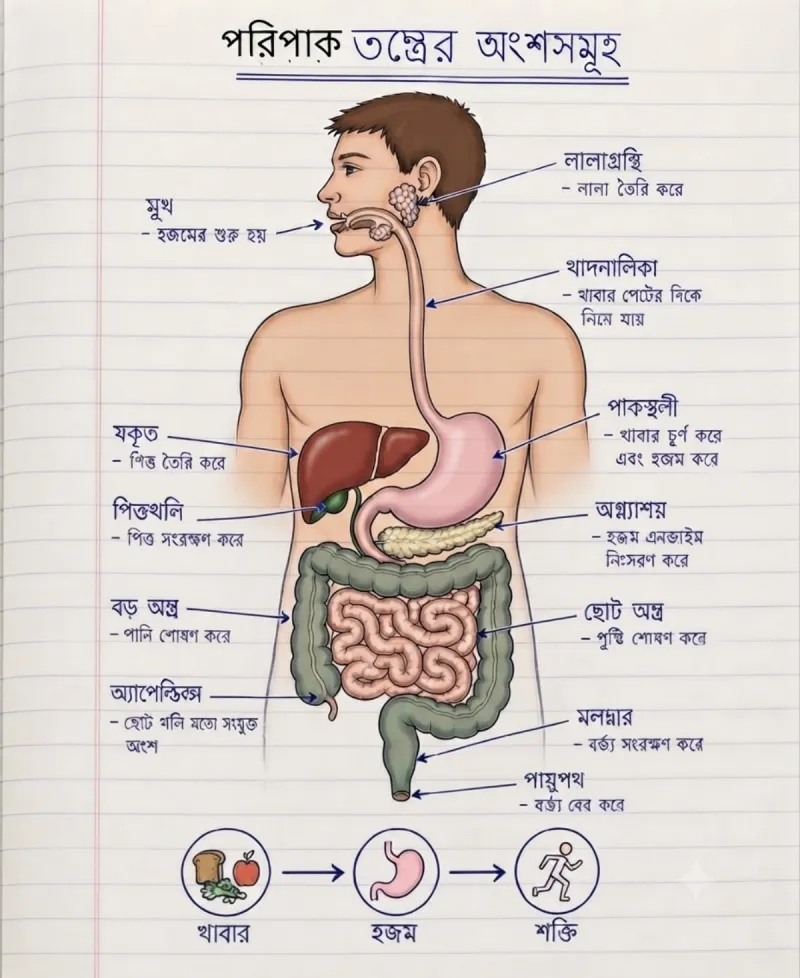 পরিপাক তন্ত্রের অংশসমূহ
লালাগ্রন্থি
- লালা তৈরি করে
মুখ
- হজমের শুরু হয়
খাদনালিকা
- খাবার পেটের দিকে
নিমে যায়
পাকস্থলী
- খাবার চূর্ণ করে
এবং হজম করে
যকৃত
- পিত্ত তৈরি করে
পিত্তথলি
- পিত্ত সংরক্ষণ করে
অগ্ন্যাশয়
- হজম এনজাইম
নিঃসরণ করে
বড় অন্ত্র
- পানি শোষণ করে
ছোট অন্ত্র
- পুষ্টি শোষণ করে
অ্যাপেন্ডিক্স
- ছোট থলি মতো সংযুক্ত
অংশ
মলদ্বার
- বর্জ্য সংরক্ষণ করে
পায়ুপথ
- বর্জ্য বের করে
খাবার
হজম
শক্তি